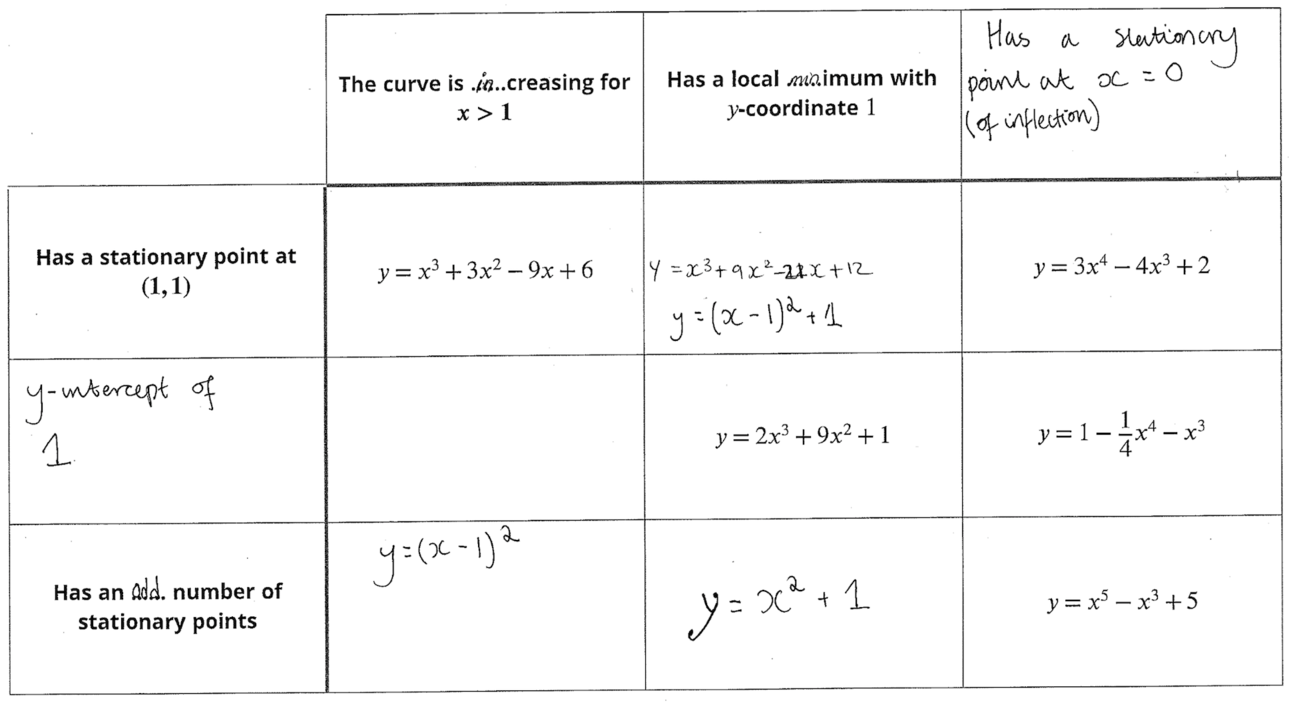 The curve is .in..creasing for
x > 1
Has a local .min.imum with
y-coordinate 1
Has a stationary
point at x = 0
(of inflection)
Has a stationary point at
(1,1)
y = x³ + 3x² − 9x + 6
y = x³ + 9x² − 21x + 12
y = (x − 1)² + 1
y = 3x⁴ − 4x³ + 2
y-intercept of
1
y = 2x³ + 9x² + 1
y = 1 − 1/4 x⁴ − x³
Has an odd. number of
stationary points
y = (x − 1)²
y = x² + 1
y = x⁵ − x³ + 5